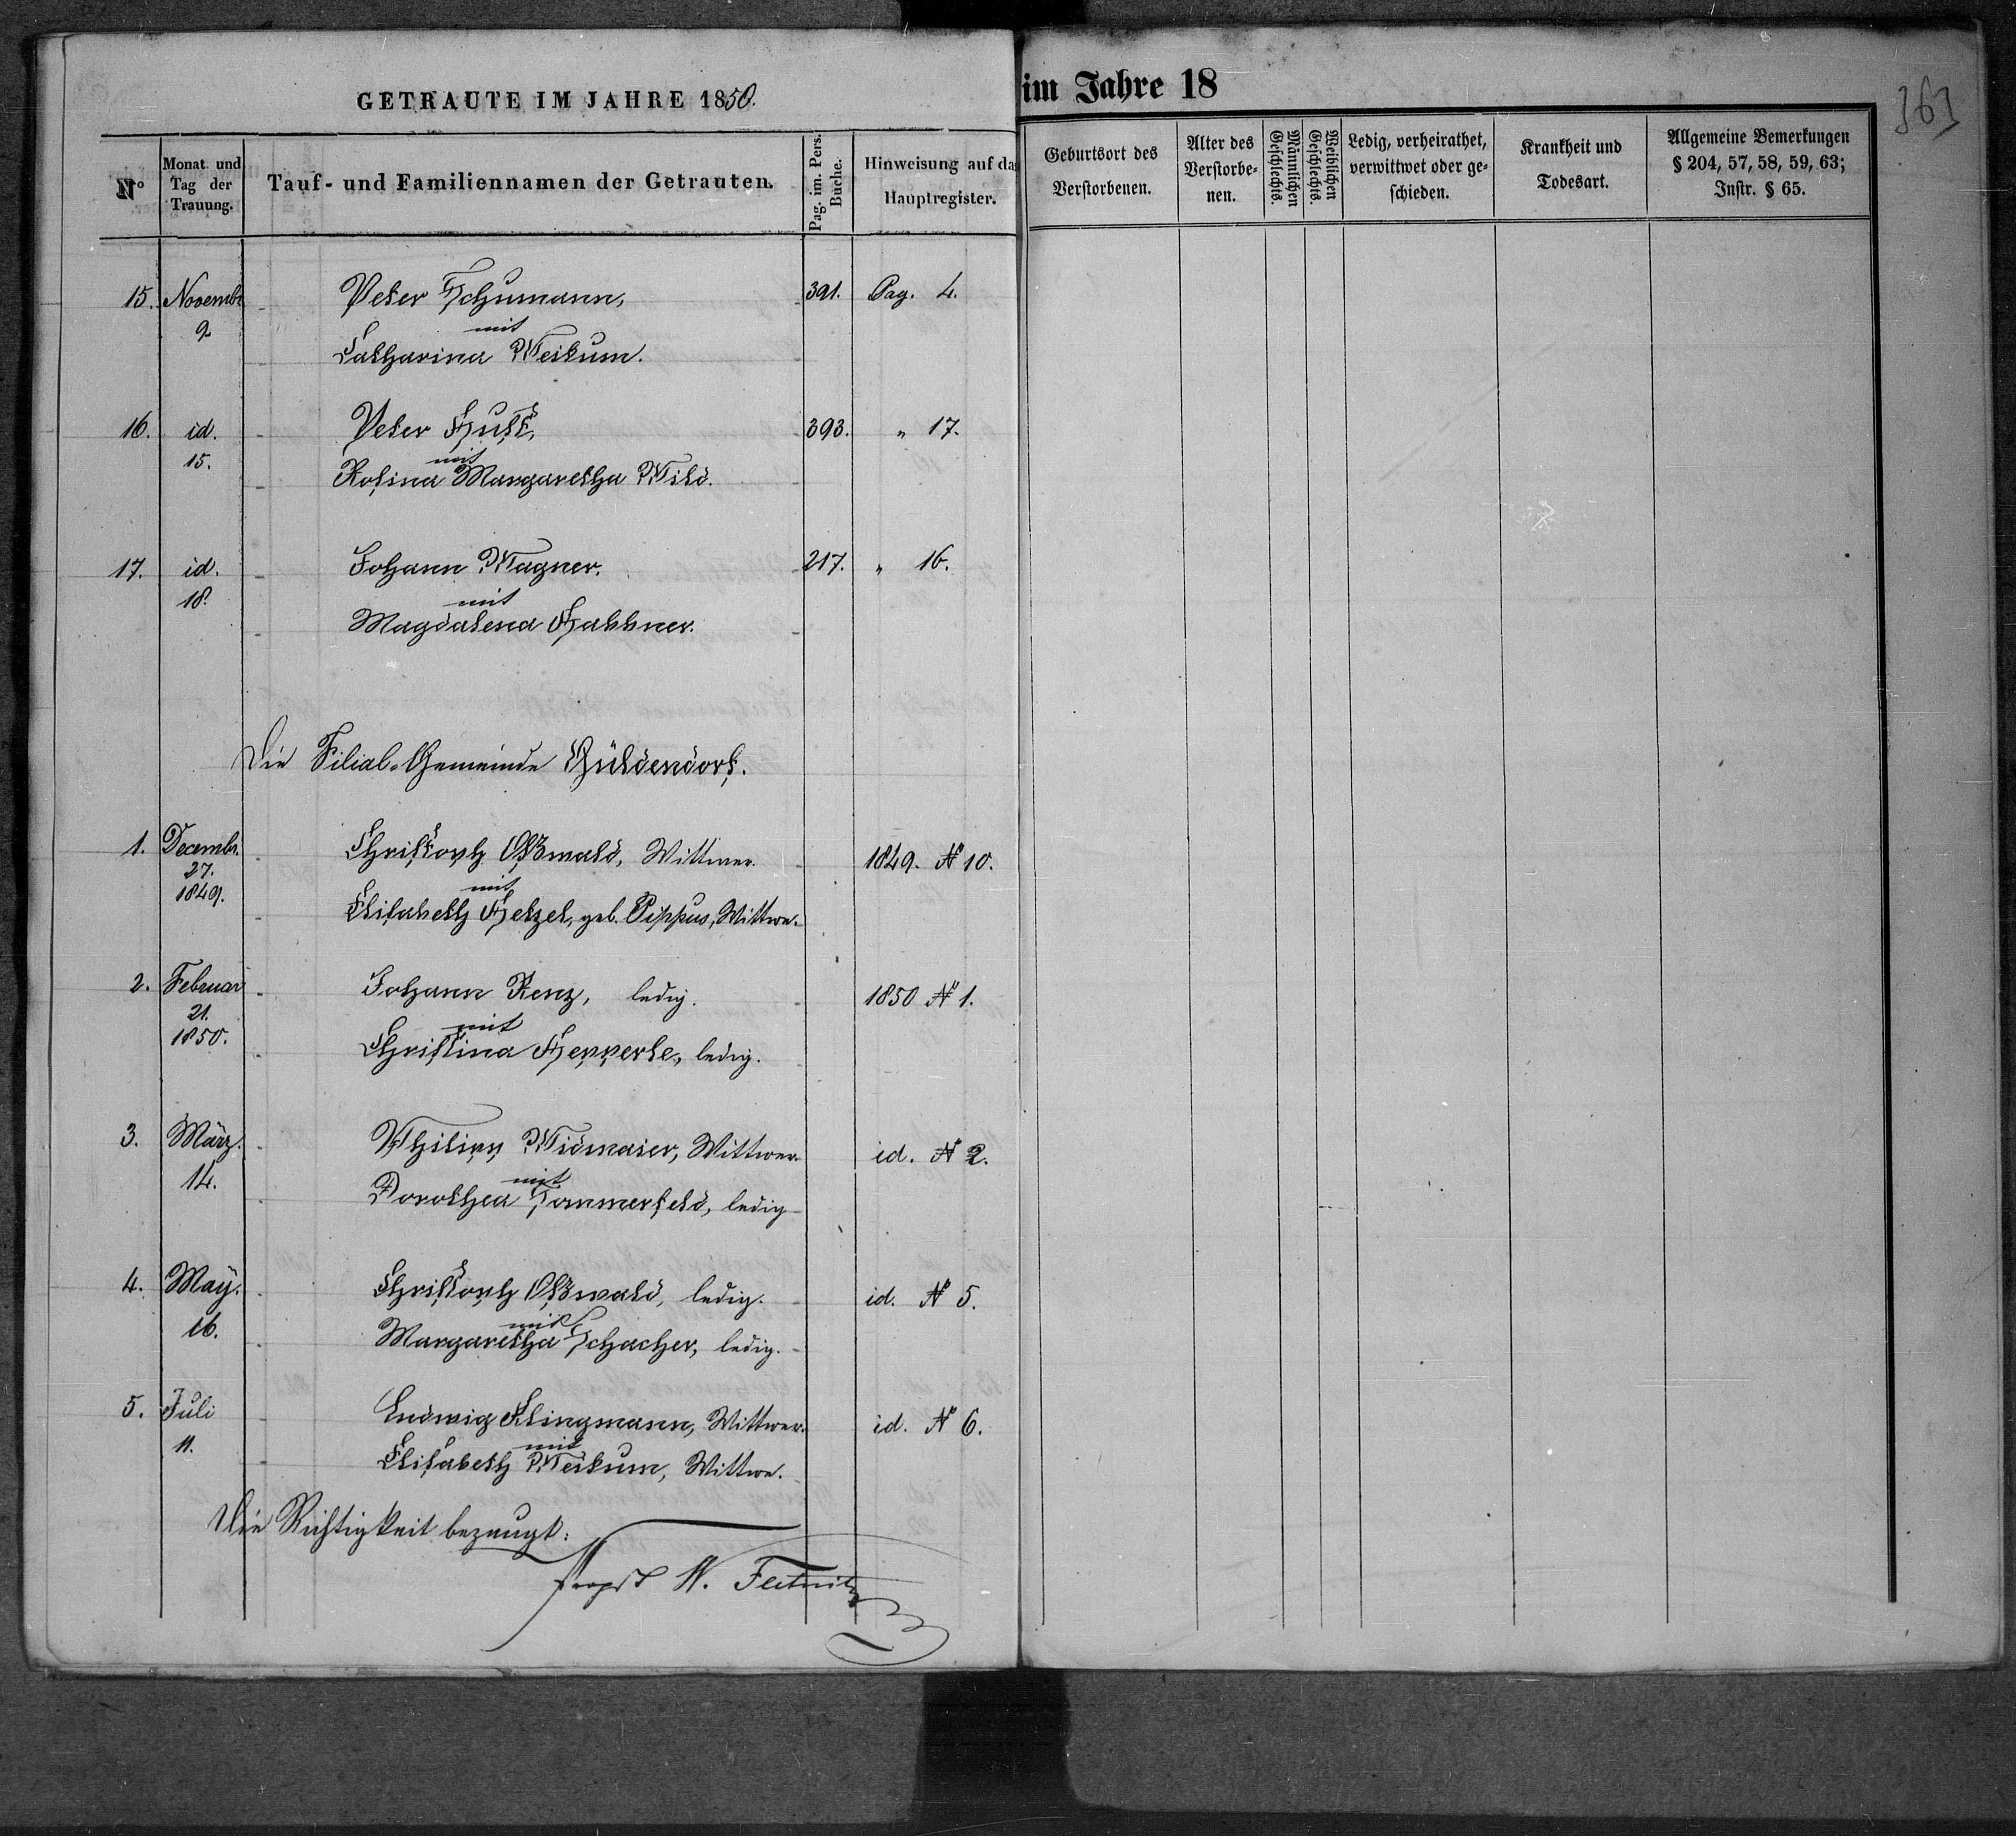 GETRAUTE IM JAHRE 1850.
No
Monat und Tag der Trauung.
Tauf- und Familiennamen der Getrauten.
Pag. im. Pers. Buche.
Hinweisung auf das Hauptregister.
15. Novembr. Peter Schumann, 391. Pag. 4.
9 mit
Catharina Weikum.
16. id. Peter Hust, 393. " 17.
15. mit
Rosina Margaretha Wild.
17. id. Johann Wagner. 217. " 16.
18. mit
Magdalena Habbner.
Die Filial-Gemeinde Güldendorf.
1. Decembr. Christoph Oßwald, Wittwer. 1849. N 10.
27. mit
1849. Elisabeth Hetzel, geb. Pippus, Wittwe.
2. Februar Johann Renz, ledig. 1850 N 1.
21. mit
1850. Christina Hepperle, ledig.
3. März. Philipp Widmaier, Wittwer. id. N 2.
14. mit
Dorothea Sommerfeld, ledig
4. May. Christoph Oßwald, ledig. id. N 5.
16. mit
Margaretha Schacher, ledig.
5. Juli Ludwig Klingmann, Wittwer. id. N 6.
11. mit
Elisabeth Weikum, Wittwe.
Die Richtigkeit bezeugt:
Propst W. Fletnitzer
im Jahre 18
363
Geburtsort des Verstorbenen.
Alter des Verstorbe-nen.
Männlichen Geschlechts.
Weiblichen Geschlechts.
Ledig, verheirathet, verwittwet oder ge-schieden.
Krankheit und Todesart.
Allgemeine Bemerkungen § 204, 57, 58, 59, 63; Instr. § 65.